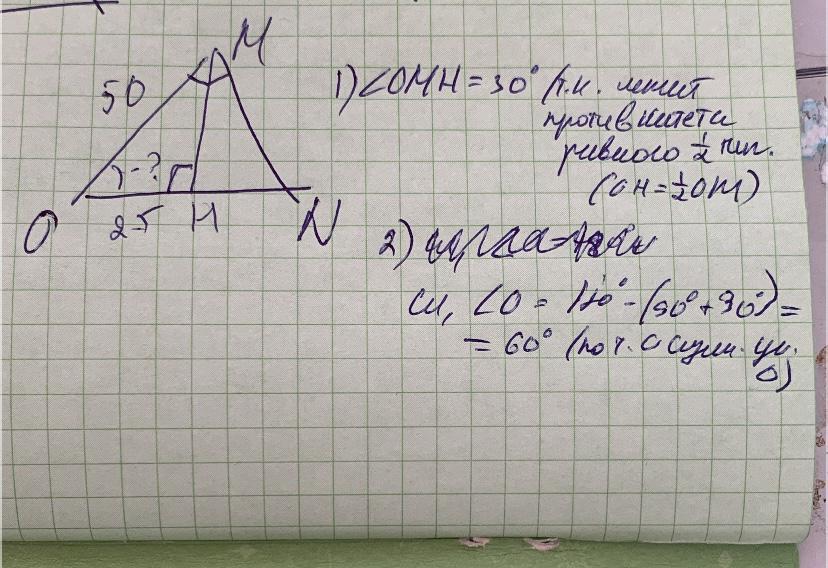 M
50
- ?
O
25
H
N
1) ∠OMH = 30° (т.к. лежит
против катета
равного 1/2 гип.
(OH = 1/2 OM)
2)
Сл, ∠O = 180° - (90° + 30°) =
= 60° (по т. о сумм. уг.
Δ)